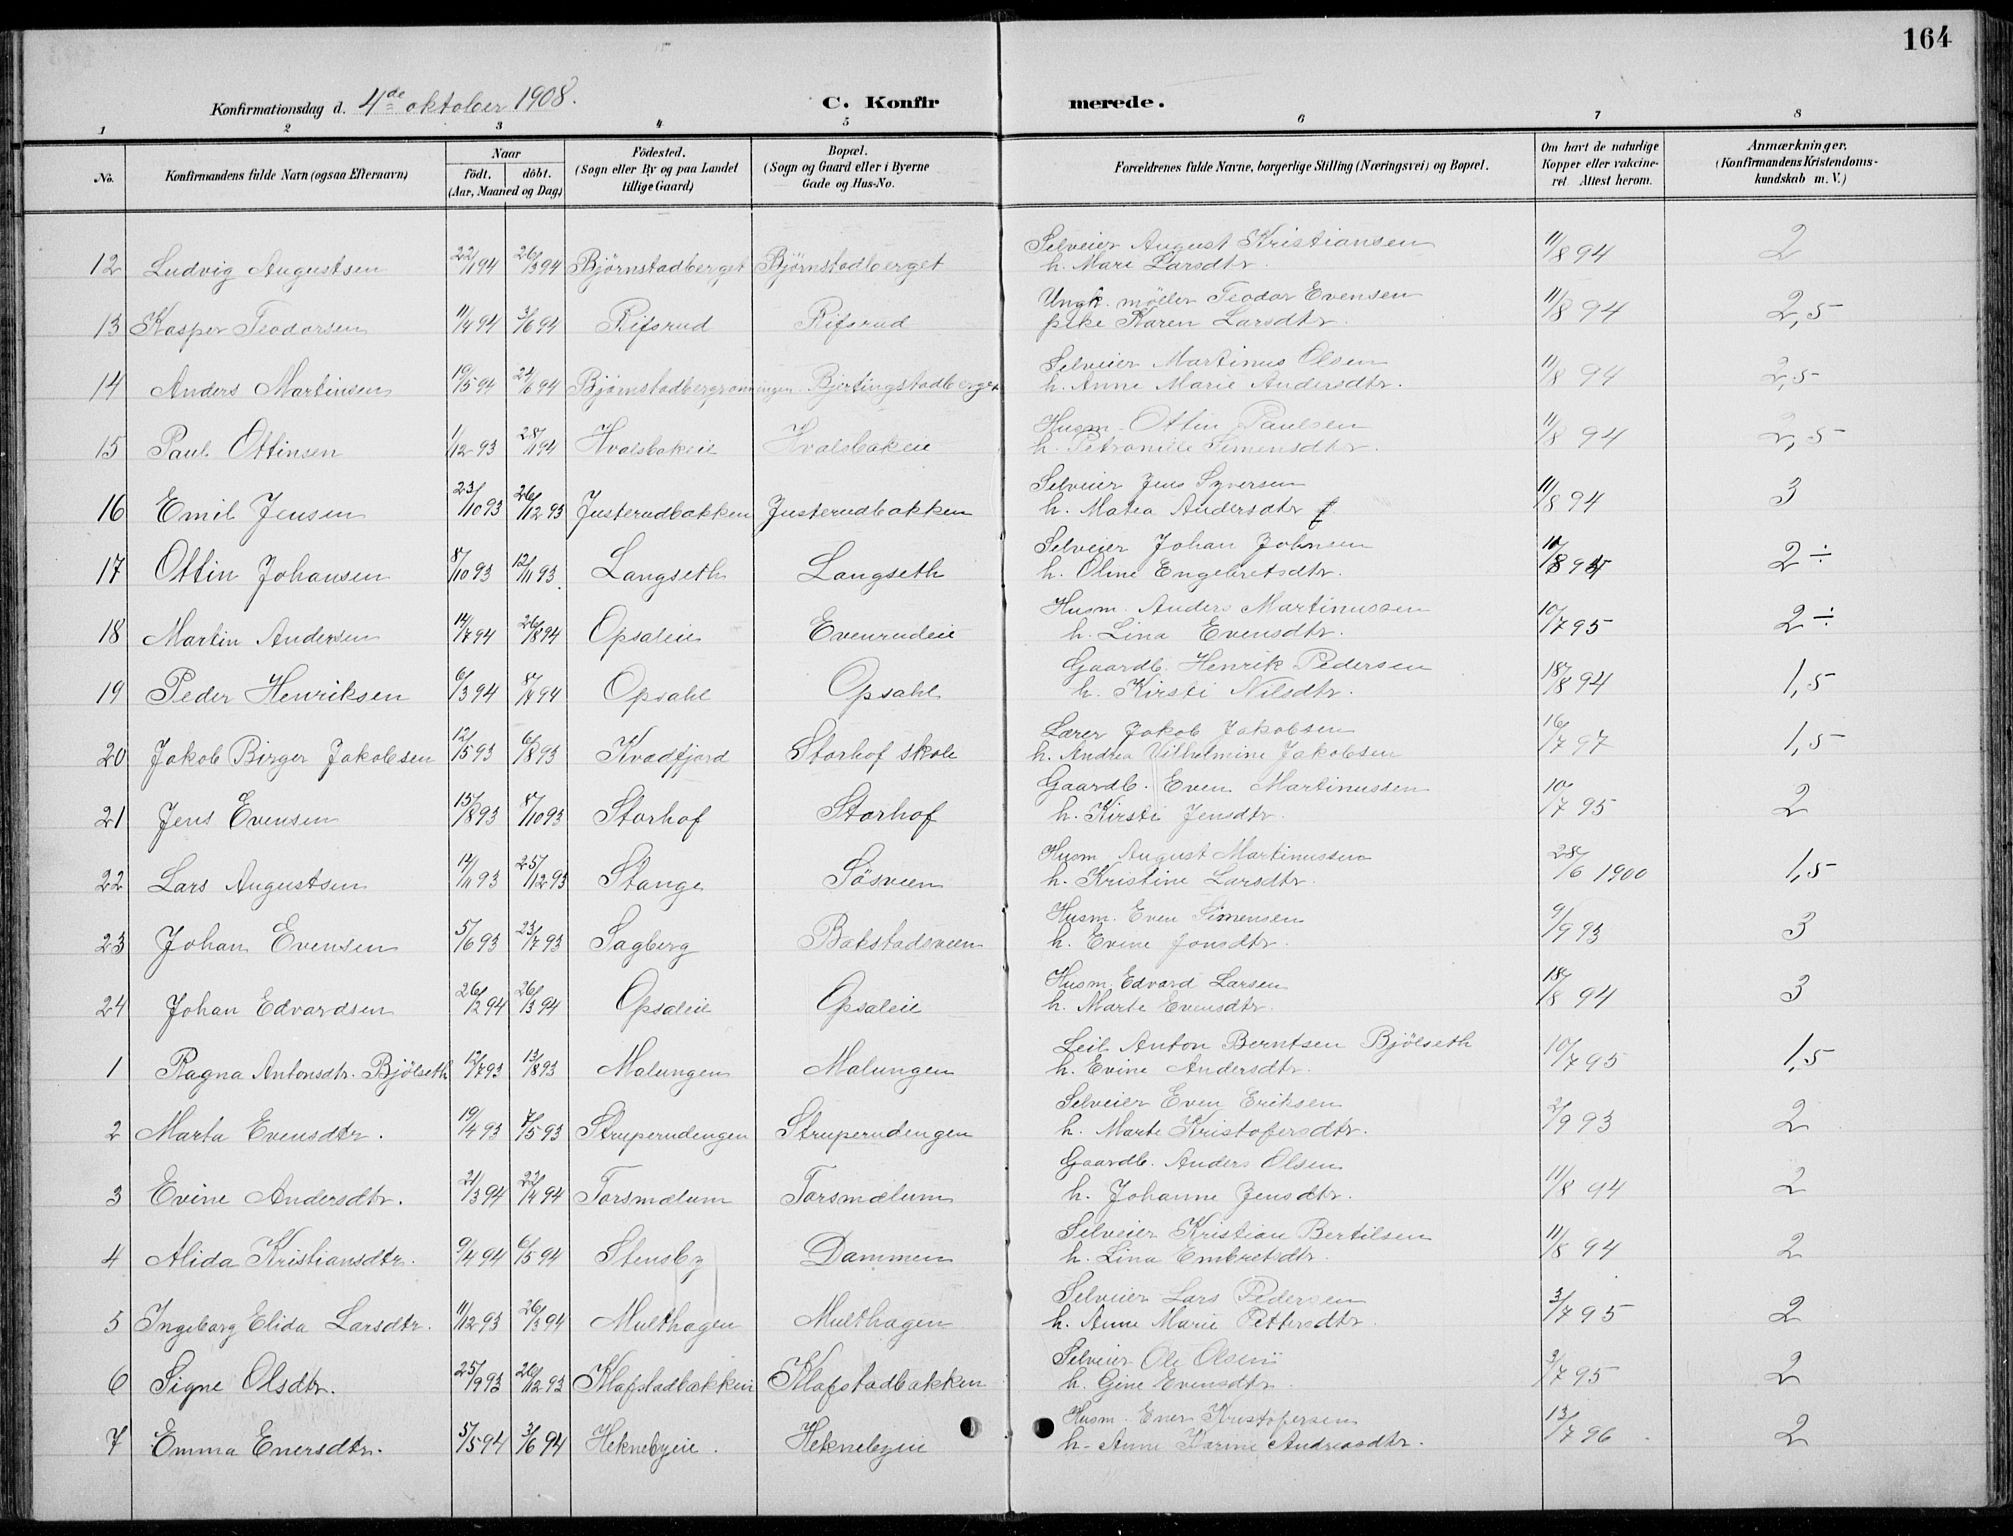 164
Konfirmationsdag d. 4de oktober 1908.
C. Konfir merede.
1 2 3 4 5 6 7 8
No.
Konfirmandens fulde Navn (ogsaa Efternavn)
Naar
födt. döbt.
(Aar, Maaned og Dag)
Födested.
(Sogn eller By og paa Landet
tillige Gaard)
Bopæl.
(Sogn og Gaard eller i Byerne
Gade og Hus-No.
Forældrenes fulde Navne, borgerlige Stilling (Næringsvei) og Bopæl.
Om havt de naturlige
Kopper eller vakcine-
ret. Attest herom.
Anmærkninger.
(Konfirmandens Kristendoms-
kundskab m. V.)
12 Ludvig Augustsen 22/1 94 26/3 94 Björnstadberget Björnstadberget Selveier August Kristiansen 11/8 94 2
h. Mari Larsdtr.
13 Kasper Teodorsen 11/4 94 3/6 94 Rifsrud Rifsrud Ungk. møller Teodor Evensen 11/8 94 2,5
pike Karen Larsdtr.
14 Anders Martinsen 19/5 94 24/6 94 Björnstadbergrønningen Bjertingstadberget Selveier Martinus Olsen 11/8 94 2,5
h. Anne Marie Andersdtr.
15 Paul Ottinsen 1/12 93 28/1 94 Hvalsbakeie Hvalsbakeie Husm. Ottin Paulsen 11/8 94 2,5
h. Petronelle Simensdtr.
16 Emil Jensen 23/10 93 26/12 93 Justerudbakken Justerudbakken Selveier Jens Syversen 11/8 94 3
h. Matea Andersdtr
17 Ottin Johansen 8/10 93 12/11 93 Langseth Langseth Selveier Johan Johnsen 2 ÷
h. Oline Engebretsdtr.
18 Martin Andersen 14/7 94 26/8 94 Opsaleie Evenrudeie Husm. Anders Martinussen 10/7 95 2 ÷
h. Lina Evensdtr.
19 Peder Henriksen 6/3 94 8/4 94 Opsahl Opsahl Gaardb. Henrik Pedersen 18/8 94 1,5
h. Kirsti Nilsdtr.
20 Jakob Birger Jakobsen 12/5 93 6/8 93 Kvadfjord Storhof skole Lærer Jakob Jakobsen 16/7 97 1,5
h. Andrea Vilhelmine Jakobsen
21 Jens Evensen 15/8 93 8/10 93 Storhof Storhof Gaardb. Even Martinussen 10/7 95 2
h. Kirsti Jensdtr.
22 Lars Augustsen 14/11 93 25/12 93 Stange Sösveen Husm August Martinussen 28/6 1900 1,5
h. Kristine Larsdtr.
23 Johan Evensen 5/6 93 23/7 93 Sagberg Bakstadsveen Husm. Even Simensen 9/9 93 3
h. Evine Jonsdtr.
24 Johan Edvardsen 26/2 94 26/3 94 Opsaleie Opsaleie Husm. Edvard Larsen 18/8 94 3
h. Marte Evensdtr.
1 Ragna Antonsdtr. Bjölseth 12/7 93 13/8 93 Malungen Malungen Leil Anton Berntsen Bjölseth 10/7 95 1,5
h. Evine Andersdtr.
2 Marta Evensdtr. 19/4 93 7/5 93 Struperudengen Struperudengen Selveier Even Eriksen 2/9 93 2
h. Marte Kristofersdtr.
3 Evine Andersdtr. 21/3 94 22/4 94 Torsmælum Torsmælum Gaardb. Anders Olsen 11/8 94 2
h. Johanne Jensdtr.
4 Alida Kristiansdtr. 9/4 94 6/5 94 Stensby Dammen Selveier Kristian Bertilsen 11/8 94 2
h. Lina Embretsdtr.
5 Ingeborg Elida Larsdtr. 11/12 93 26/3 94 Multhagen Multhagen Selveier Lars Pedersen 3/7 95 2
h. Anne Marie Pettersdtr.
6 Signe Olsdtr. 25/9 93 26/12 93 Klafstadbakken Klafstadbakken Selveier Ole Olsen 3/7 95 2
h. Gine Evensdtr.
7 Emma Enersdtr. 5/5 94 3/6 94 Heknebyeie. Heknebyeie Husm. Ener Kristofersen 13/7 96 2
h. Anne Karine Andreasdtr.